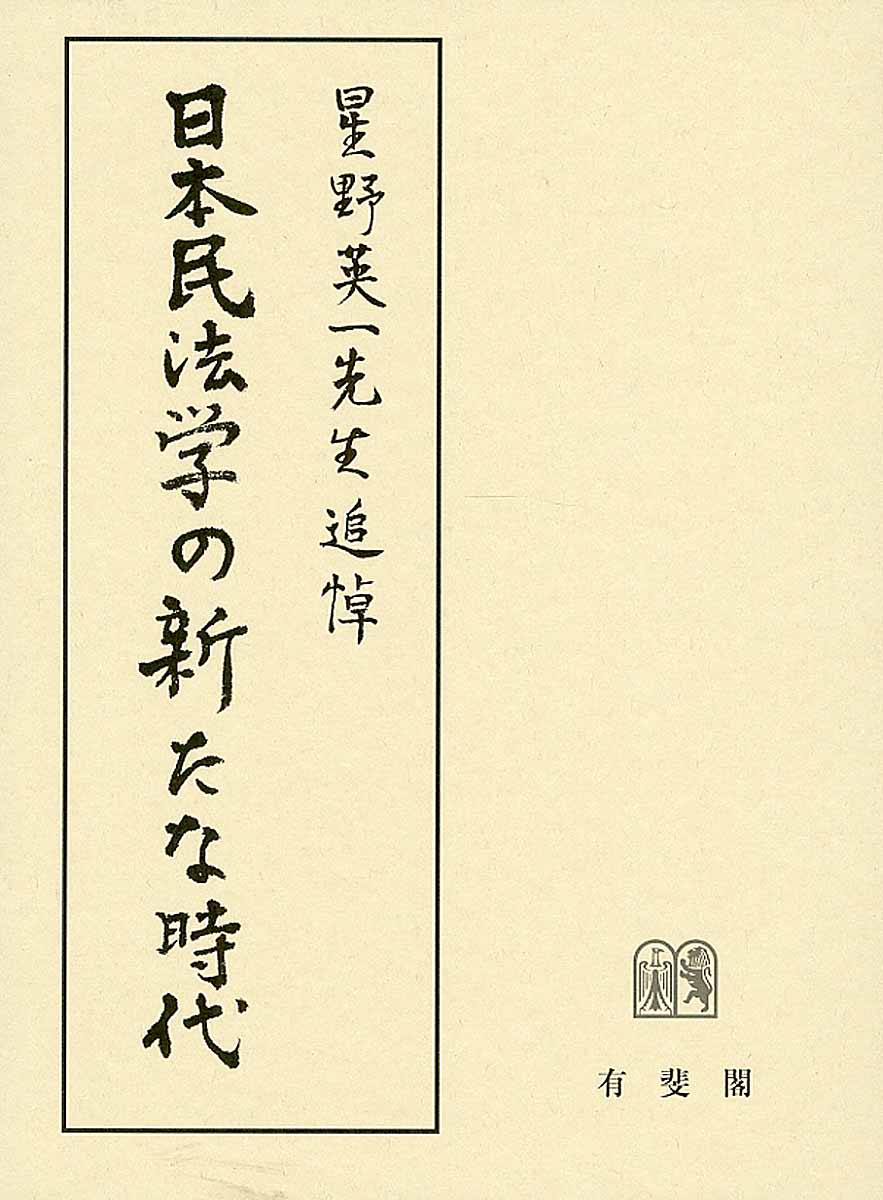 星野英一先生追悼
日本民法学の新たな時代
有斐閣